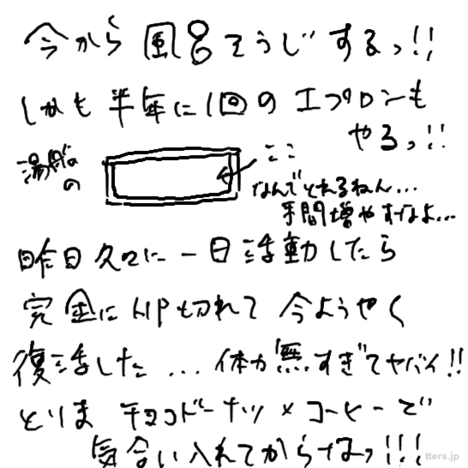 今から風呂そうじするっ!!
しかも半年に1回のエプロンも
やるっ!!
湯船の
の
ここ
なんでとれるねん...
手間増やすなよ...
昨日久々に一日活動したら
完全にHP切れて今ようやく
復活した...体力無すぎてヤバイ!!
とりまチョコドーナツ×コーヒーで
気合い入れてからなっ!!!
tters.jp